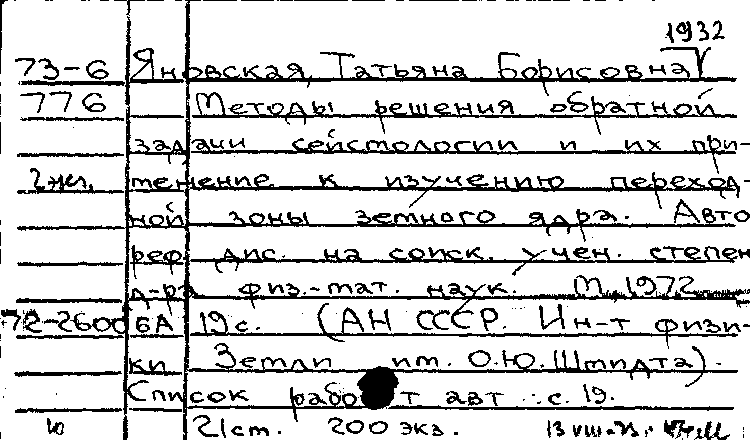 1932
73-6 Яновская, Татьяна Борисовна
776 Методы решения обратной
задачи сейсмологии и их при-
2 экз. менение к изучению переход-
ной зоны земного ядра. Авто
реф. дис. на соиск. учен. степен
д-ра физ.-мат. наук. М., 1972
72-26006А 19 с. (АН СССР. Ин-т физи-
ки Земли им. О.Ю. Шмидта).
Список работ авт с. 19.
ю 21 cm. 200 экз. 13 VIII-73.